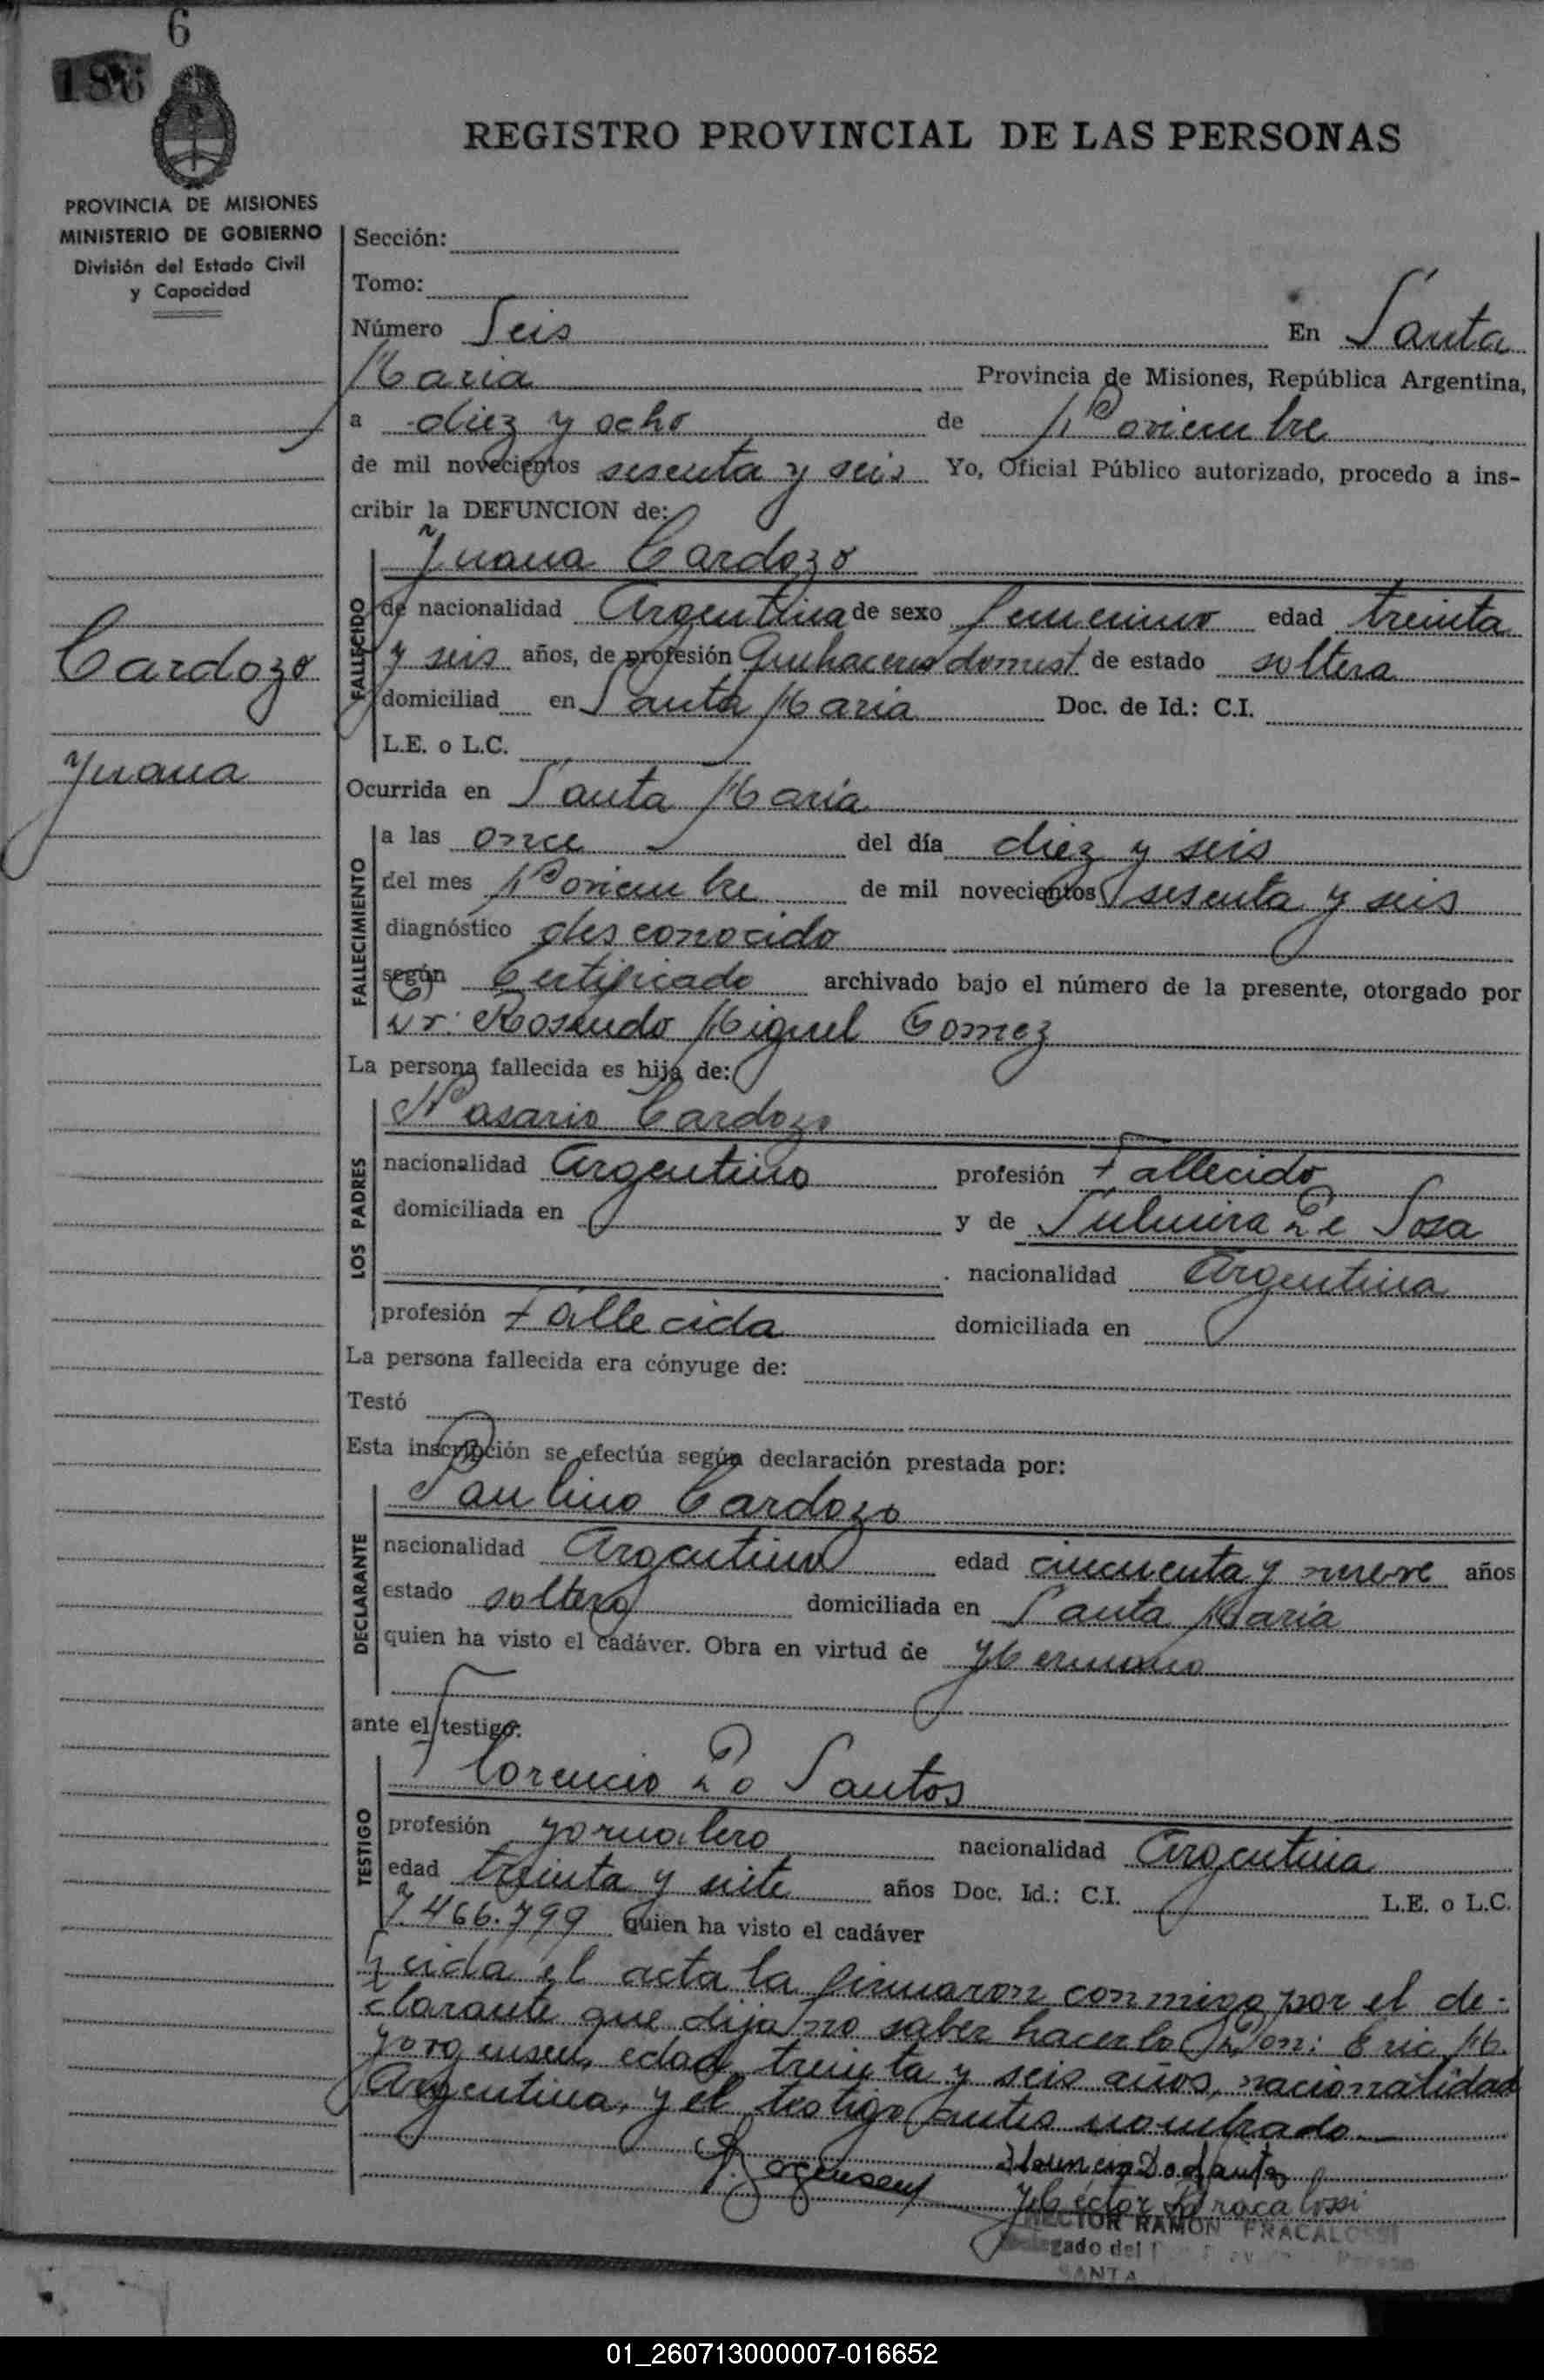 6
186
REGISTRO PROVINCIAL DE LAS PERSONAS
PROVINCIA DE MISIONES
MINISTERIO DE GOBIERNO
División del Estado Civil
y Capacidad
Cardozo
Juana
Sección:
Tomo:
Número Seis En Santa
Maria Provincia de Misiones, República Argentina,
a diez y ocho de Noviembre
de mil novecientos sesenta y seis Yo, Oficial Público autorizado, procedo a ins-
cribir la DEFUNCION de:
Juana Cardozo
FALLECIDO
de nacionalidad Argentina de sexo femenino edad treinta
y seis años, de profesión Quehaceres domest de estado soltera
domiciliad en Santa Maria Doc. de Id.: C.I.
L.E. o L.C.
Ocurrida en Santa Maria
FALLECIMIENTO
a las once del día diez y seis
del mes Noviembre de mil novecientos sesenta y seis
diagnóstico desconocido
según Certificado archivado bajo el número de la presente, otorgado por
Dr. Rosendo Miguel Gomez
La persona fallecida es hija de:
LOS PADRES
Nasario Cardozo
nacionalidad Argentino profesión Fallecido
domiciliada en y de De Sosa
nacionalidad Argentina
profesión Fallecida domiciliada en
La persona fallecida era cónyuge de:
Testó
Esta inscripción se efectúa según declaración prestada por:
DECLARANTE
Paulino Cardozo
nacionalidad Argentino edad cincuenta y nueve años
estado soltero domiciliada en Santa Maria
quien ha visto el cadáver. Obra en virtud de Hermano
ante el testigo:
TESTIGO
Florencio Do Santos
profesión Jornalero nacionalidad Argentina
edad treinta y siete años Doc. Id.: C.I. L.E. o L.C.
7.466.799 quien ha visto el cadáver
Leida el acta la firmaron conmigo por el de-
clarante que dijo no saber hacerlo Don: Eric M.
Jorgensen, edad treinta y seis años, nacionalidad
Argentina, y el testigo antes nombrado
Jorgensen
Florencio Do Santos
Héctor R Fracalossi
HECTOR RAMON FRACALOSSI
Delegado del
SANTA
01_260713000007-016652